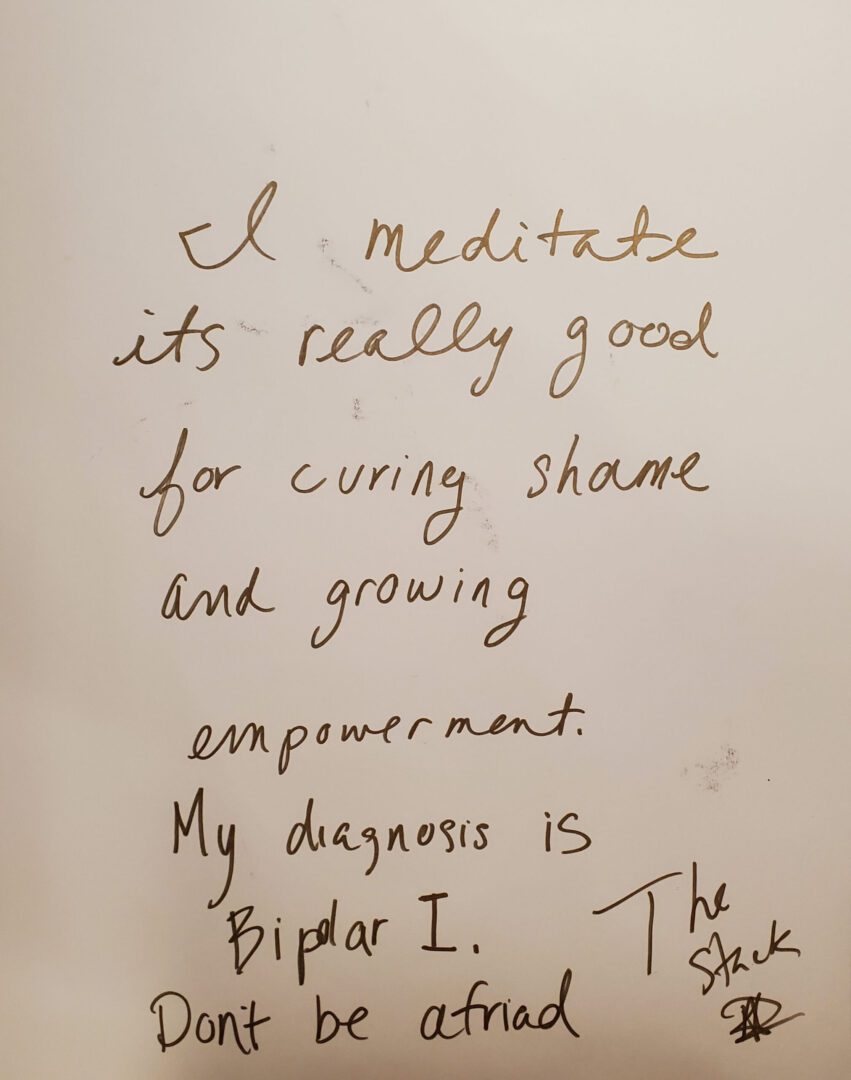 I meditate
its really good
for curing shame
and growing
empowerment.
My diagnosis is
Bipolar I.
Don't be afriad
The
Stack